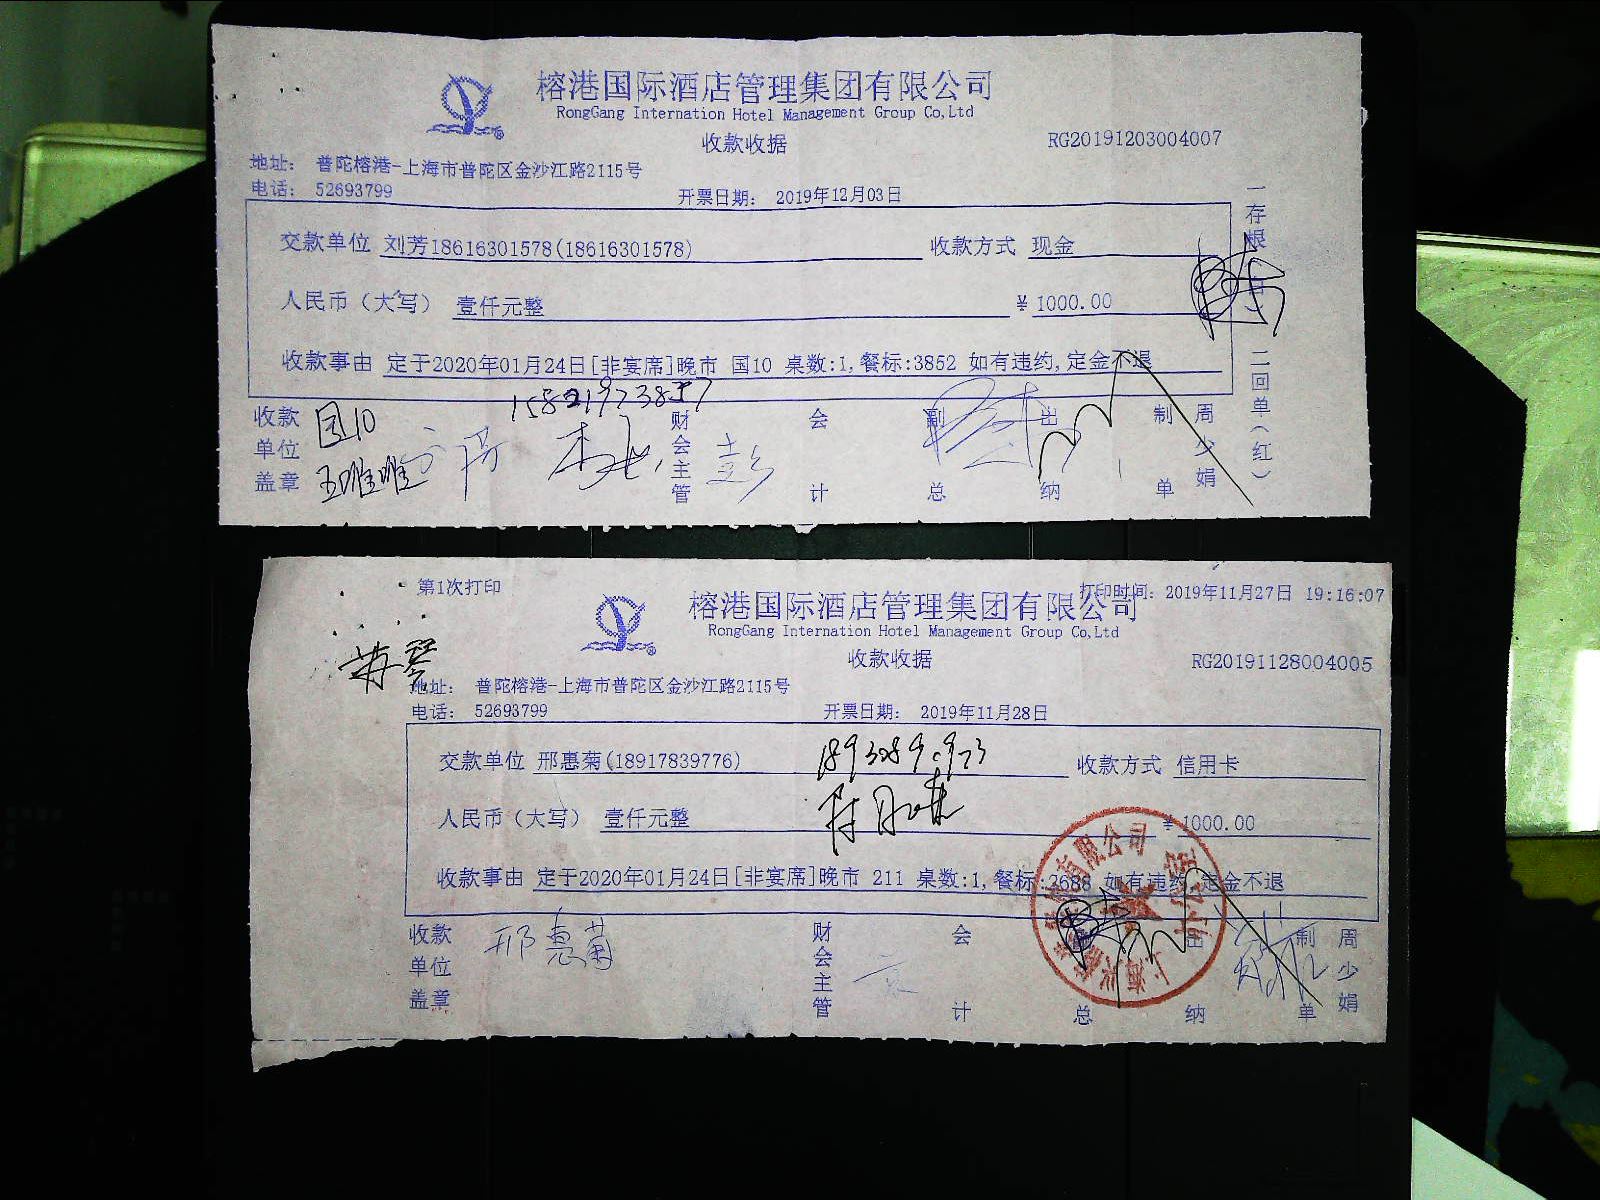 榕港国际酒店管理集团有限公司
RongGang Internation Hotel Management Group Co,Ltd
收款收据 RG20191203004007
地址： 普陀榕港-上海市普陀区金沙江路2115号
电话： 52693799 开票日期： 2019年12月03日
交款单位 刘芳18616301578(18616301578) 收款方式 现金
人民币（大写） 壹仟元整 ￥1000.00
收款事由 定于2020年01月24日[非宴席]晚市 国10 桌数:1,餐标:3852 如有违约,定金不退
15821973857
收款单位盖章 国10 财会主管 会计 副总 出纳 制单 周少娟
一存根
二回单（红）
第1次打印 打印时间：2019年11月27日 19:16:07
榕港国际酒店管理集团有限公司
RongGang Internation Hotel Management Group Co,Ltd
收款收据 RG20191128004005
地址： 普陀榕港-上海市普陀区金沙江路2115号
电话： 52693799 开票日期： 2019年11月28日
交款单位 邢惠菊(18917839776) 收款方式 信用卡
人民币（大写） 壹仟元整 ￥1000.00
收款事由 定于2020年01月24日[非宴席]晚市 211 桌数:1,餐标:2688 如有违约,定金不退
收款单位盖章 邢惠菊 财会主管 会计 总 出纳 制单 周少娟